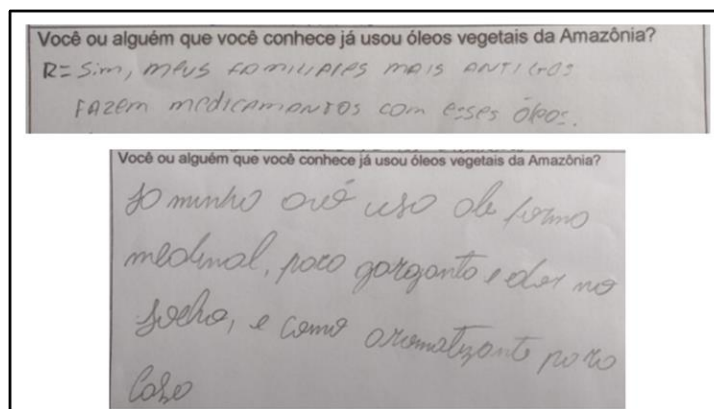 Você ou alguém que você conhece já usou óleos vegetais da Amazônia?
R= Sim, meus familiares mais antigos
fazem medicamentos com esses óleos.
Você ou alguém que você conhece já usou óleos vegetais da Amazônia?
minha avó usa de forma
medinal, para garganta e dor no
joelho, e como aromatizante para
Casa